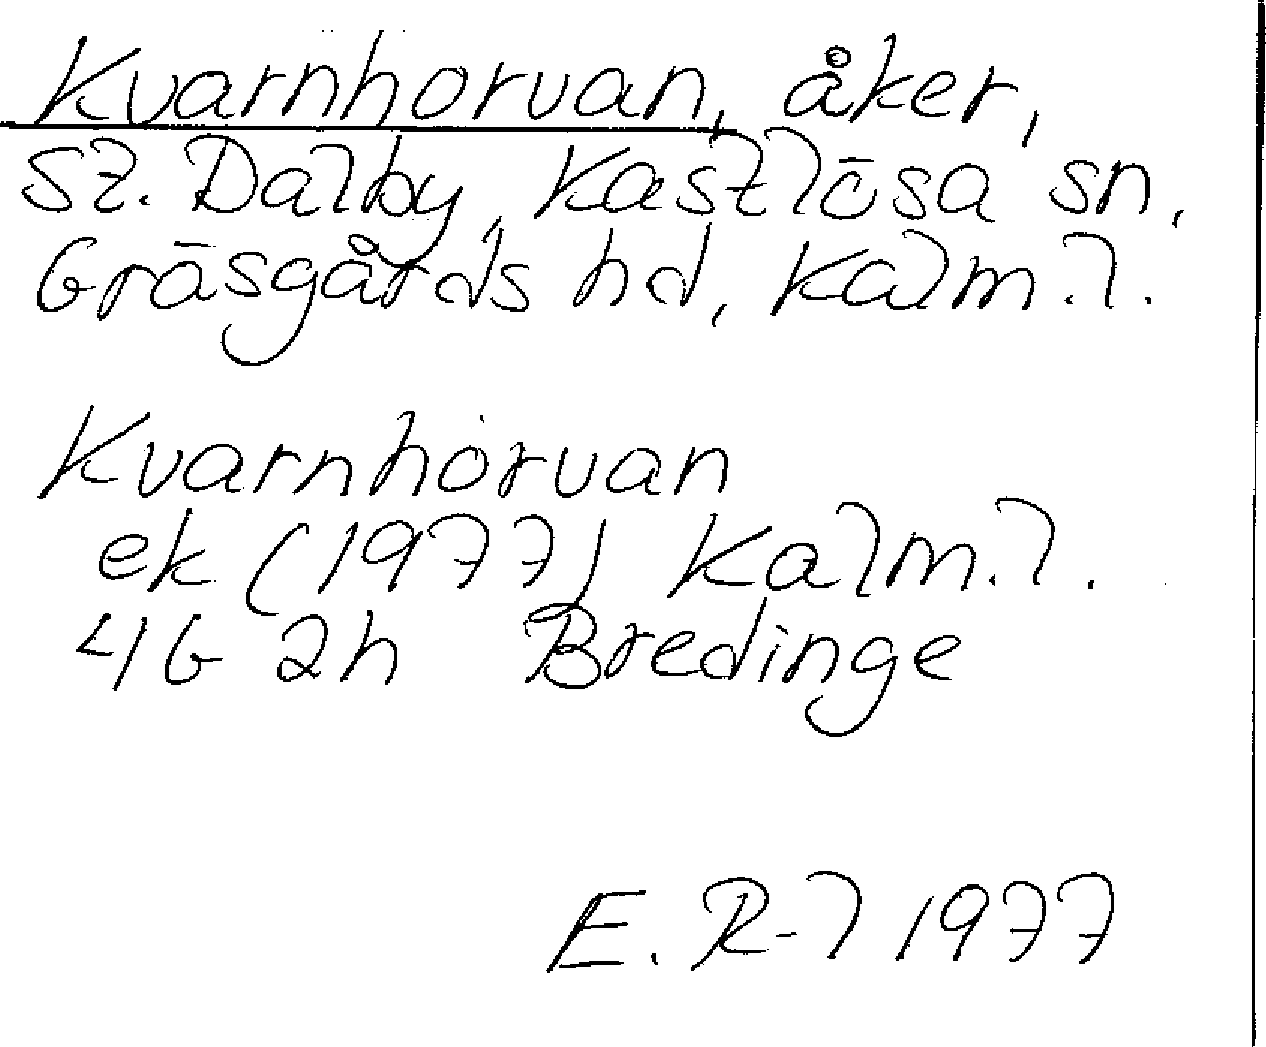 Kvarnhorvan, åker,
St. Dalby, Kastlösa sn,
Gräsgårds hd, Kalm. l.
Kvarnhorvan
ek (1977) Kalm. l.
4G 2h Bredinge
E. R-l 1977